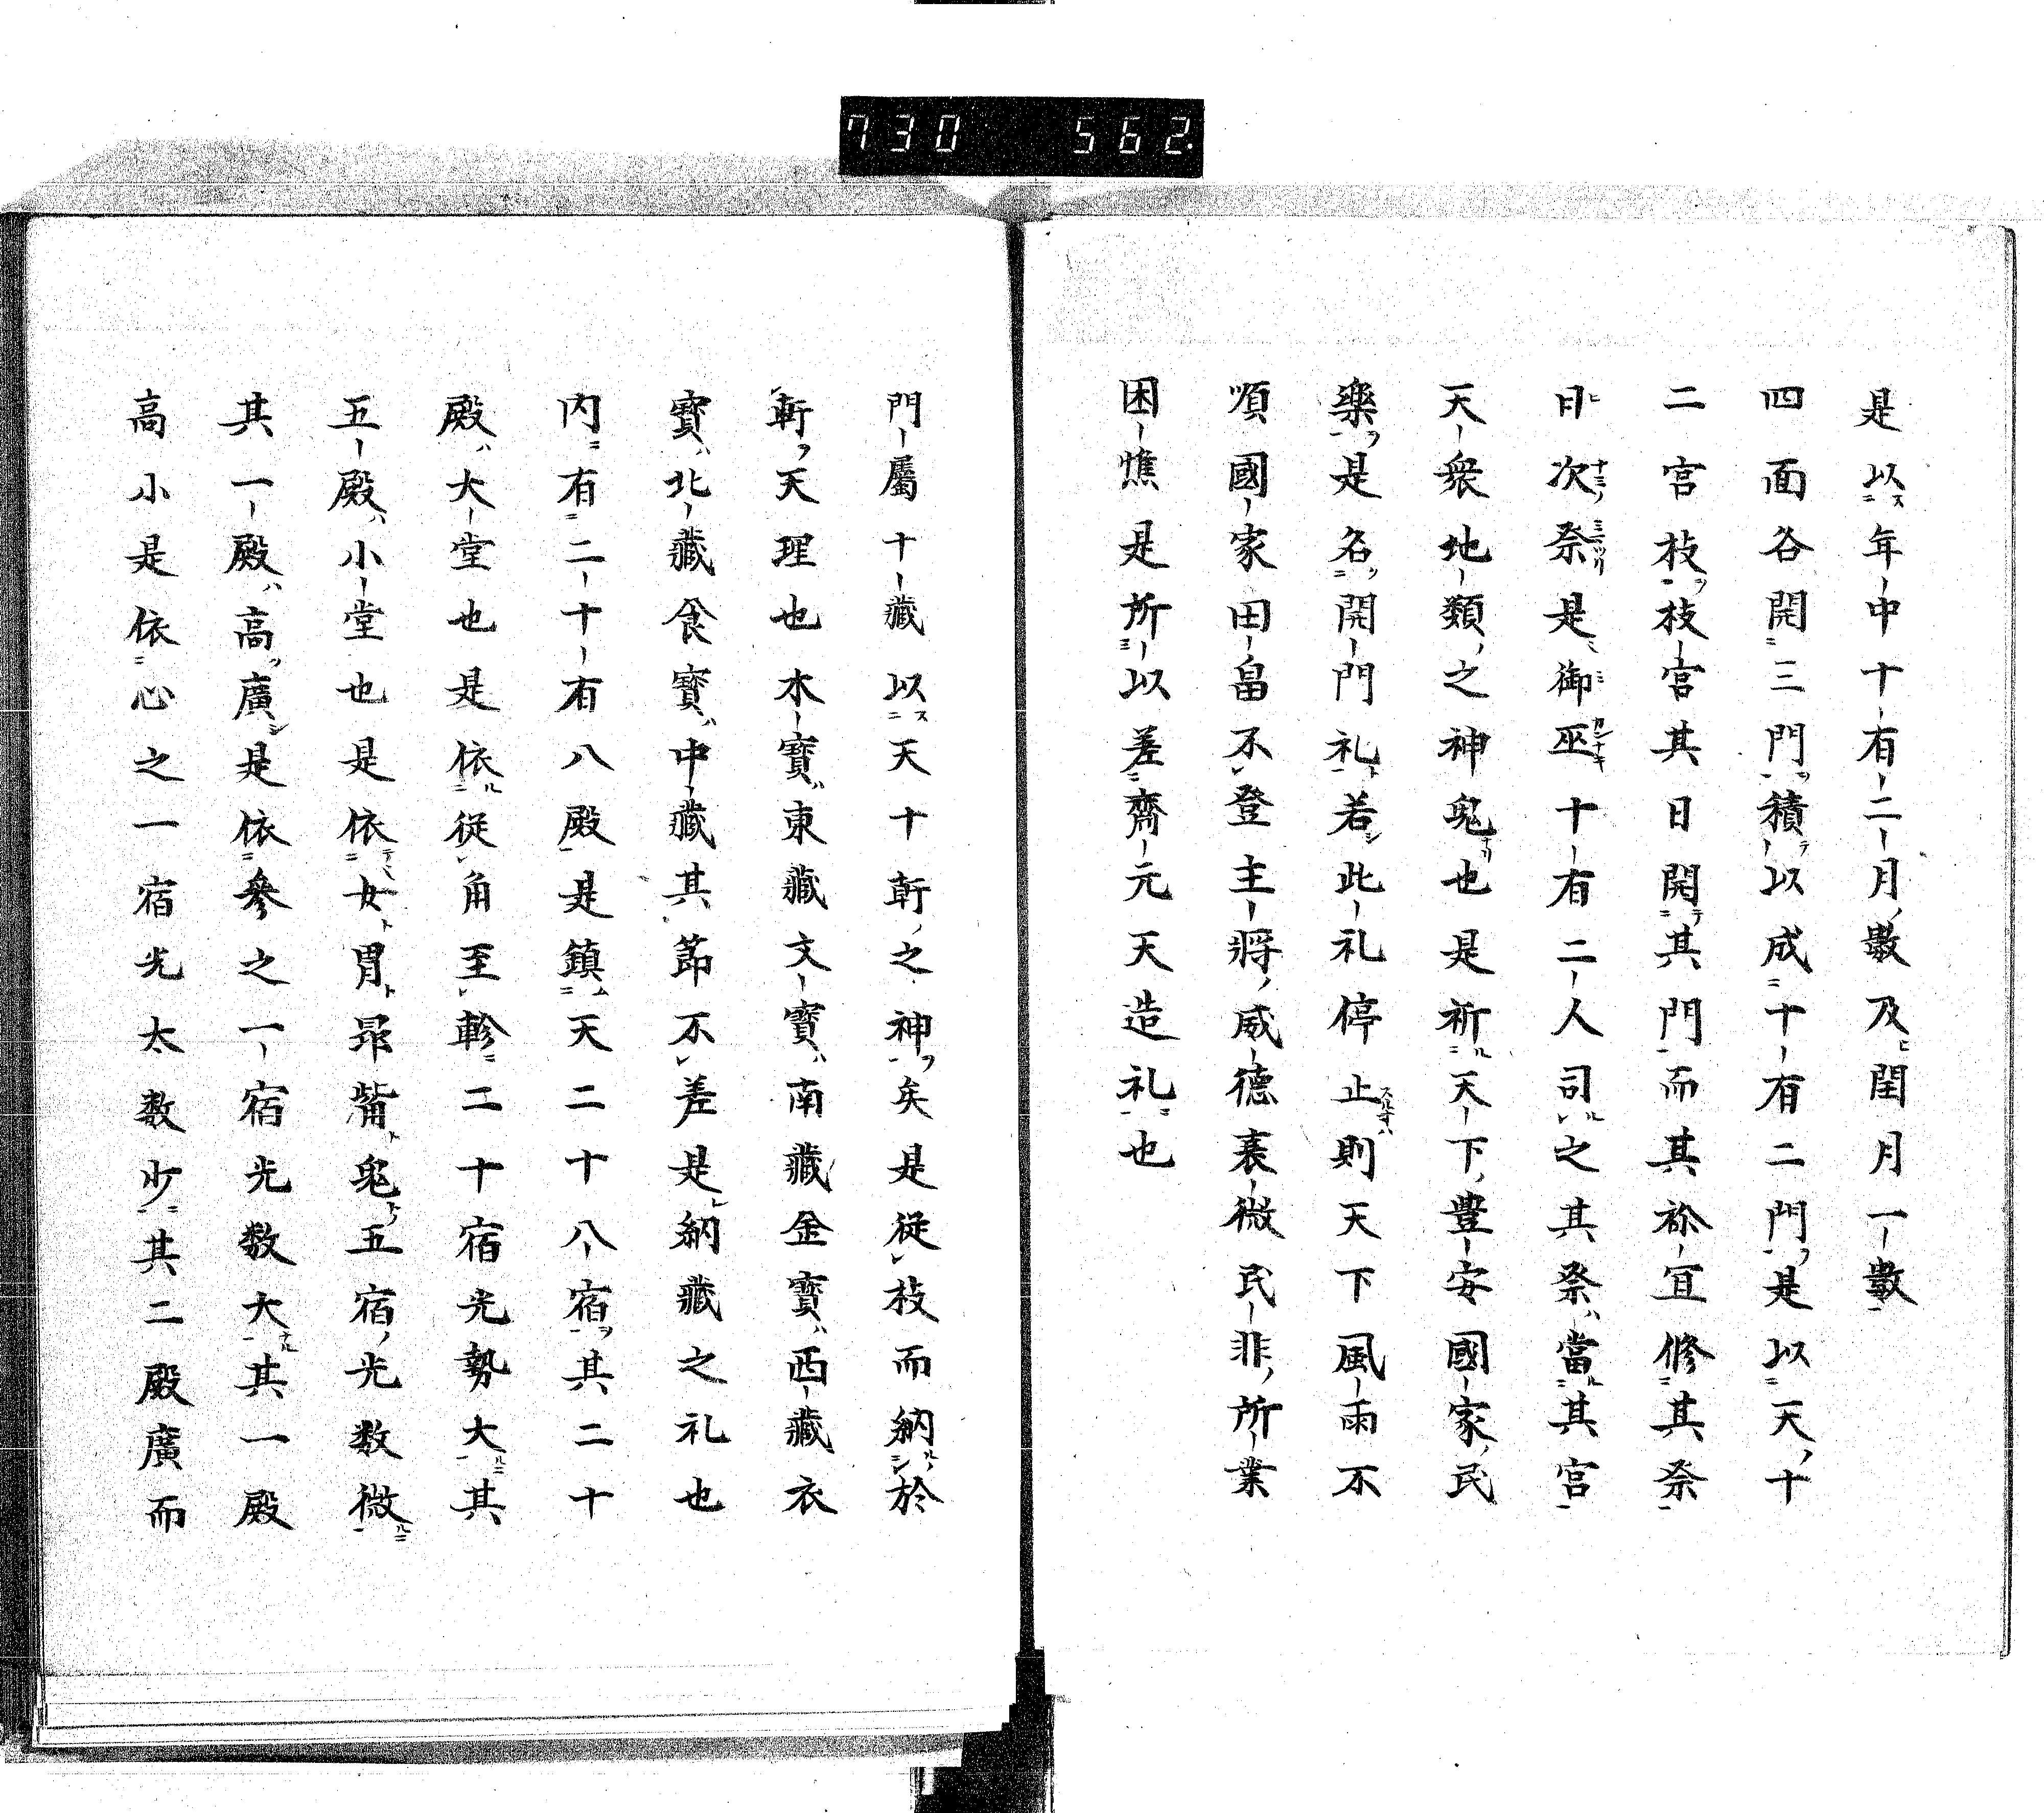 730 562
是以年中十有二月數及閏月一數
四面各開三門積以成十有二門是以天十
二宮枝枝宮其日開其門而其祢宜修其祭
日次祭是御巫十有二人司之其祭當其宮
天衆地類之神鬼也是祈天下豊安國家民
樂是名開門礼若此礼停止則天下風雨不
順國家田畠不登主將威德衰微民非所業
困憔是所以差齊元天造礼也
門屬十藏以天十幹之神矣是從枝而納於
幹天理也木寶東藏文寶南藏金寶西藏衣
寶北藏食寶中藏其節不差是納藏之礼也
内有二十有八殿是鎮天二十八宿其二十
殿大堂也是依從角至軫二十宿光勢大其
五殿小堂也是依女胃昴觜鬼五宿光数微
其一殿高廣是依參之一宿光数大其一殿
高小是依心之一宿光太数少其二殿廣而